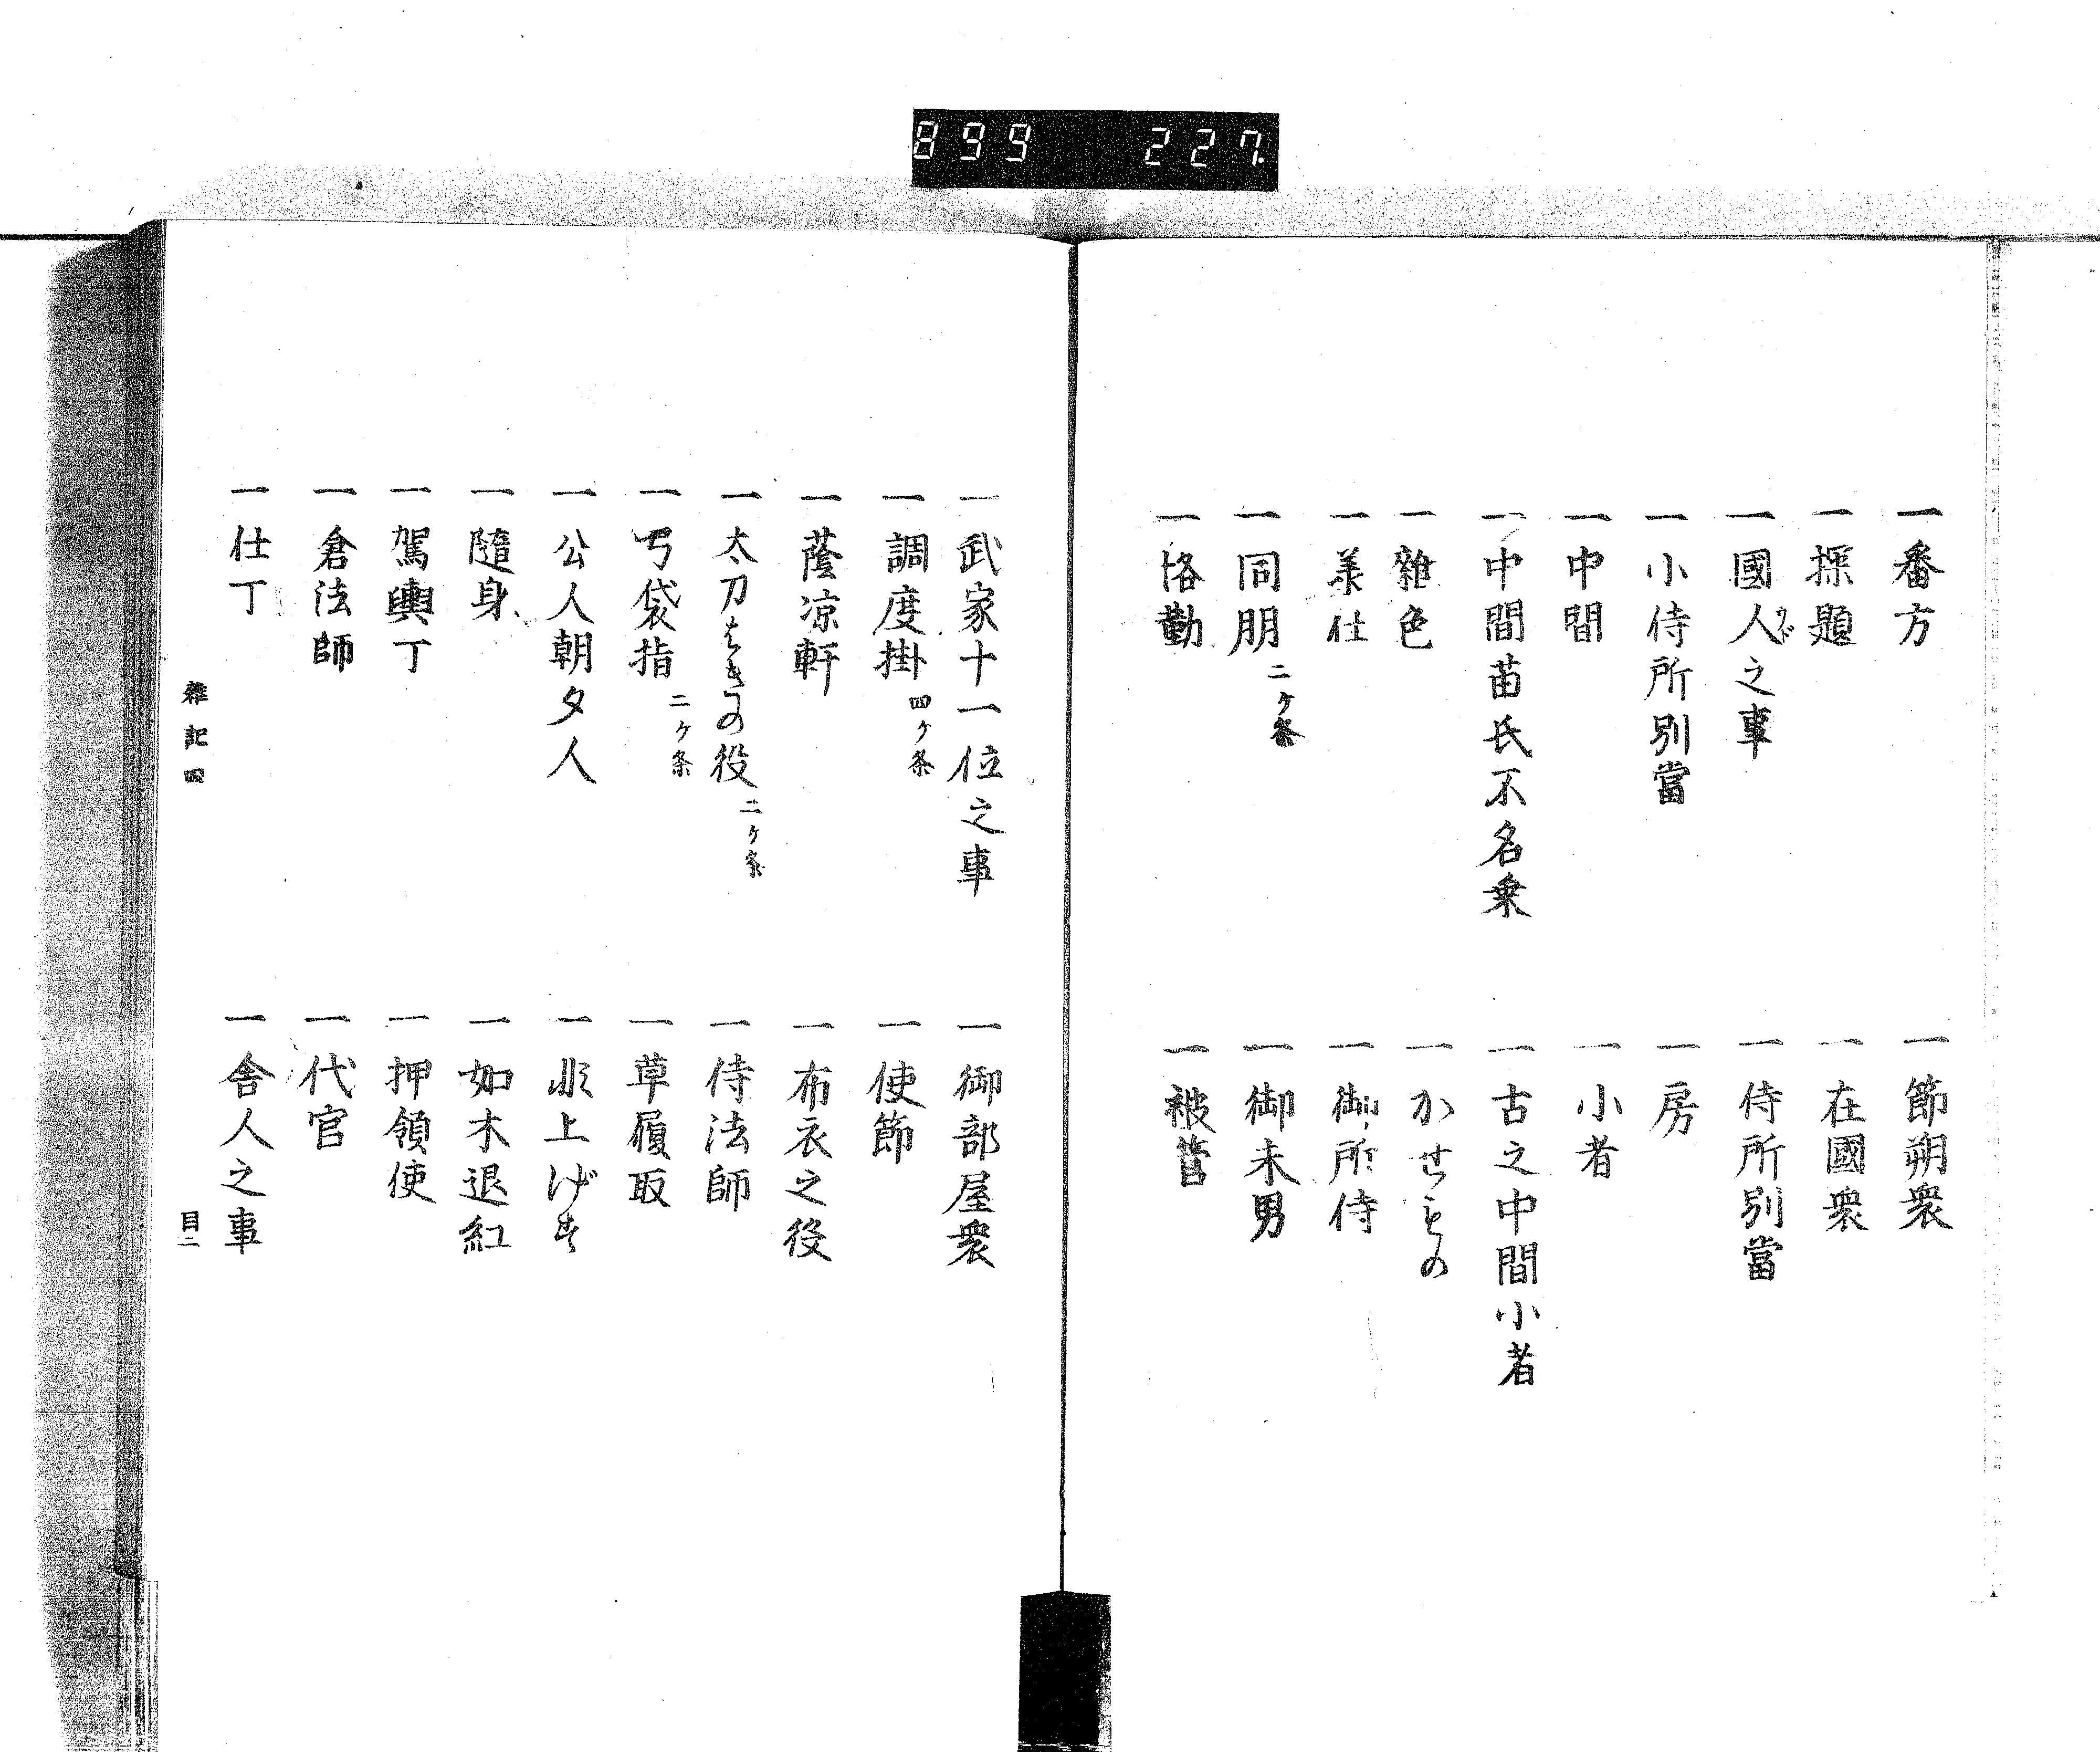 899 227
一番方
一節朔衆
一探題
一在國衆
一國人之事
ウド
一侍所別當
一小侍所別當
一房
一中間
一小者
一中間苗氏不名乗
一古之中間小者
一雜色
一かせもの
一美仕
一御所侍
一同朋 二ケ条
一御末男
一恪勤
一被管
一武家十一位之事
一御部屋衆
一調度掛 四ケ条
一使節
一蔭凉軒
一布衣之役
一太刀はきの役 二ケ条
一侍法師
一弓袋指 二ケ条
一草履取
一公人朝夕人
一上げ
一隨身
一如木退紅
一駕輿丁
一押領使
一倉法師
一代官
一仕丁
一舎人之事
雜記四
目二